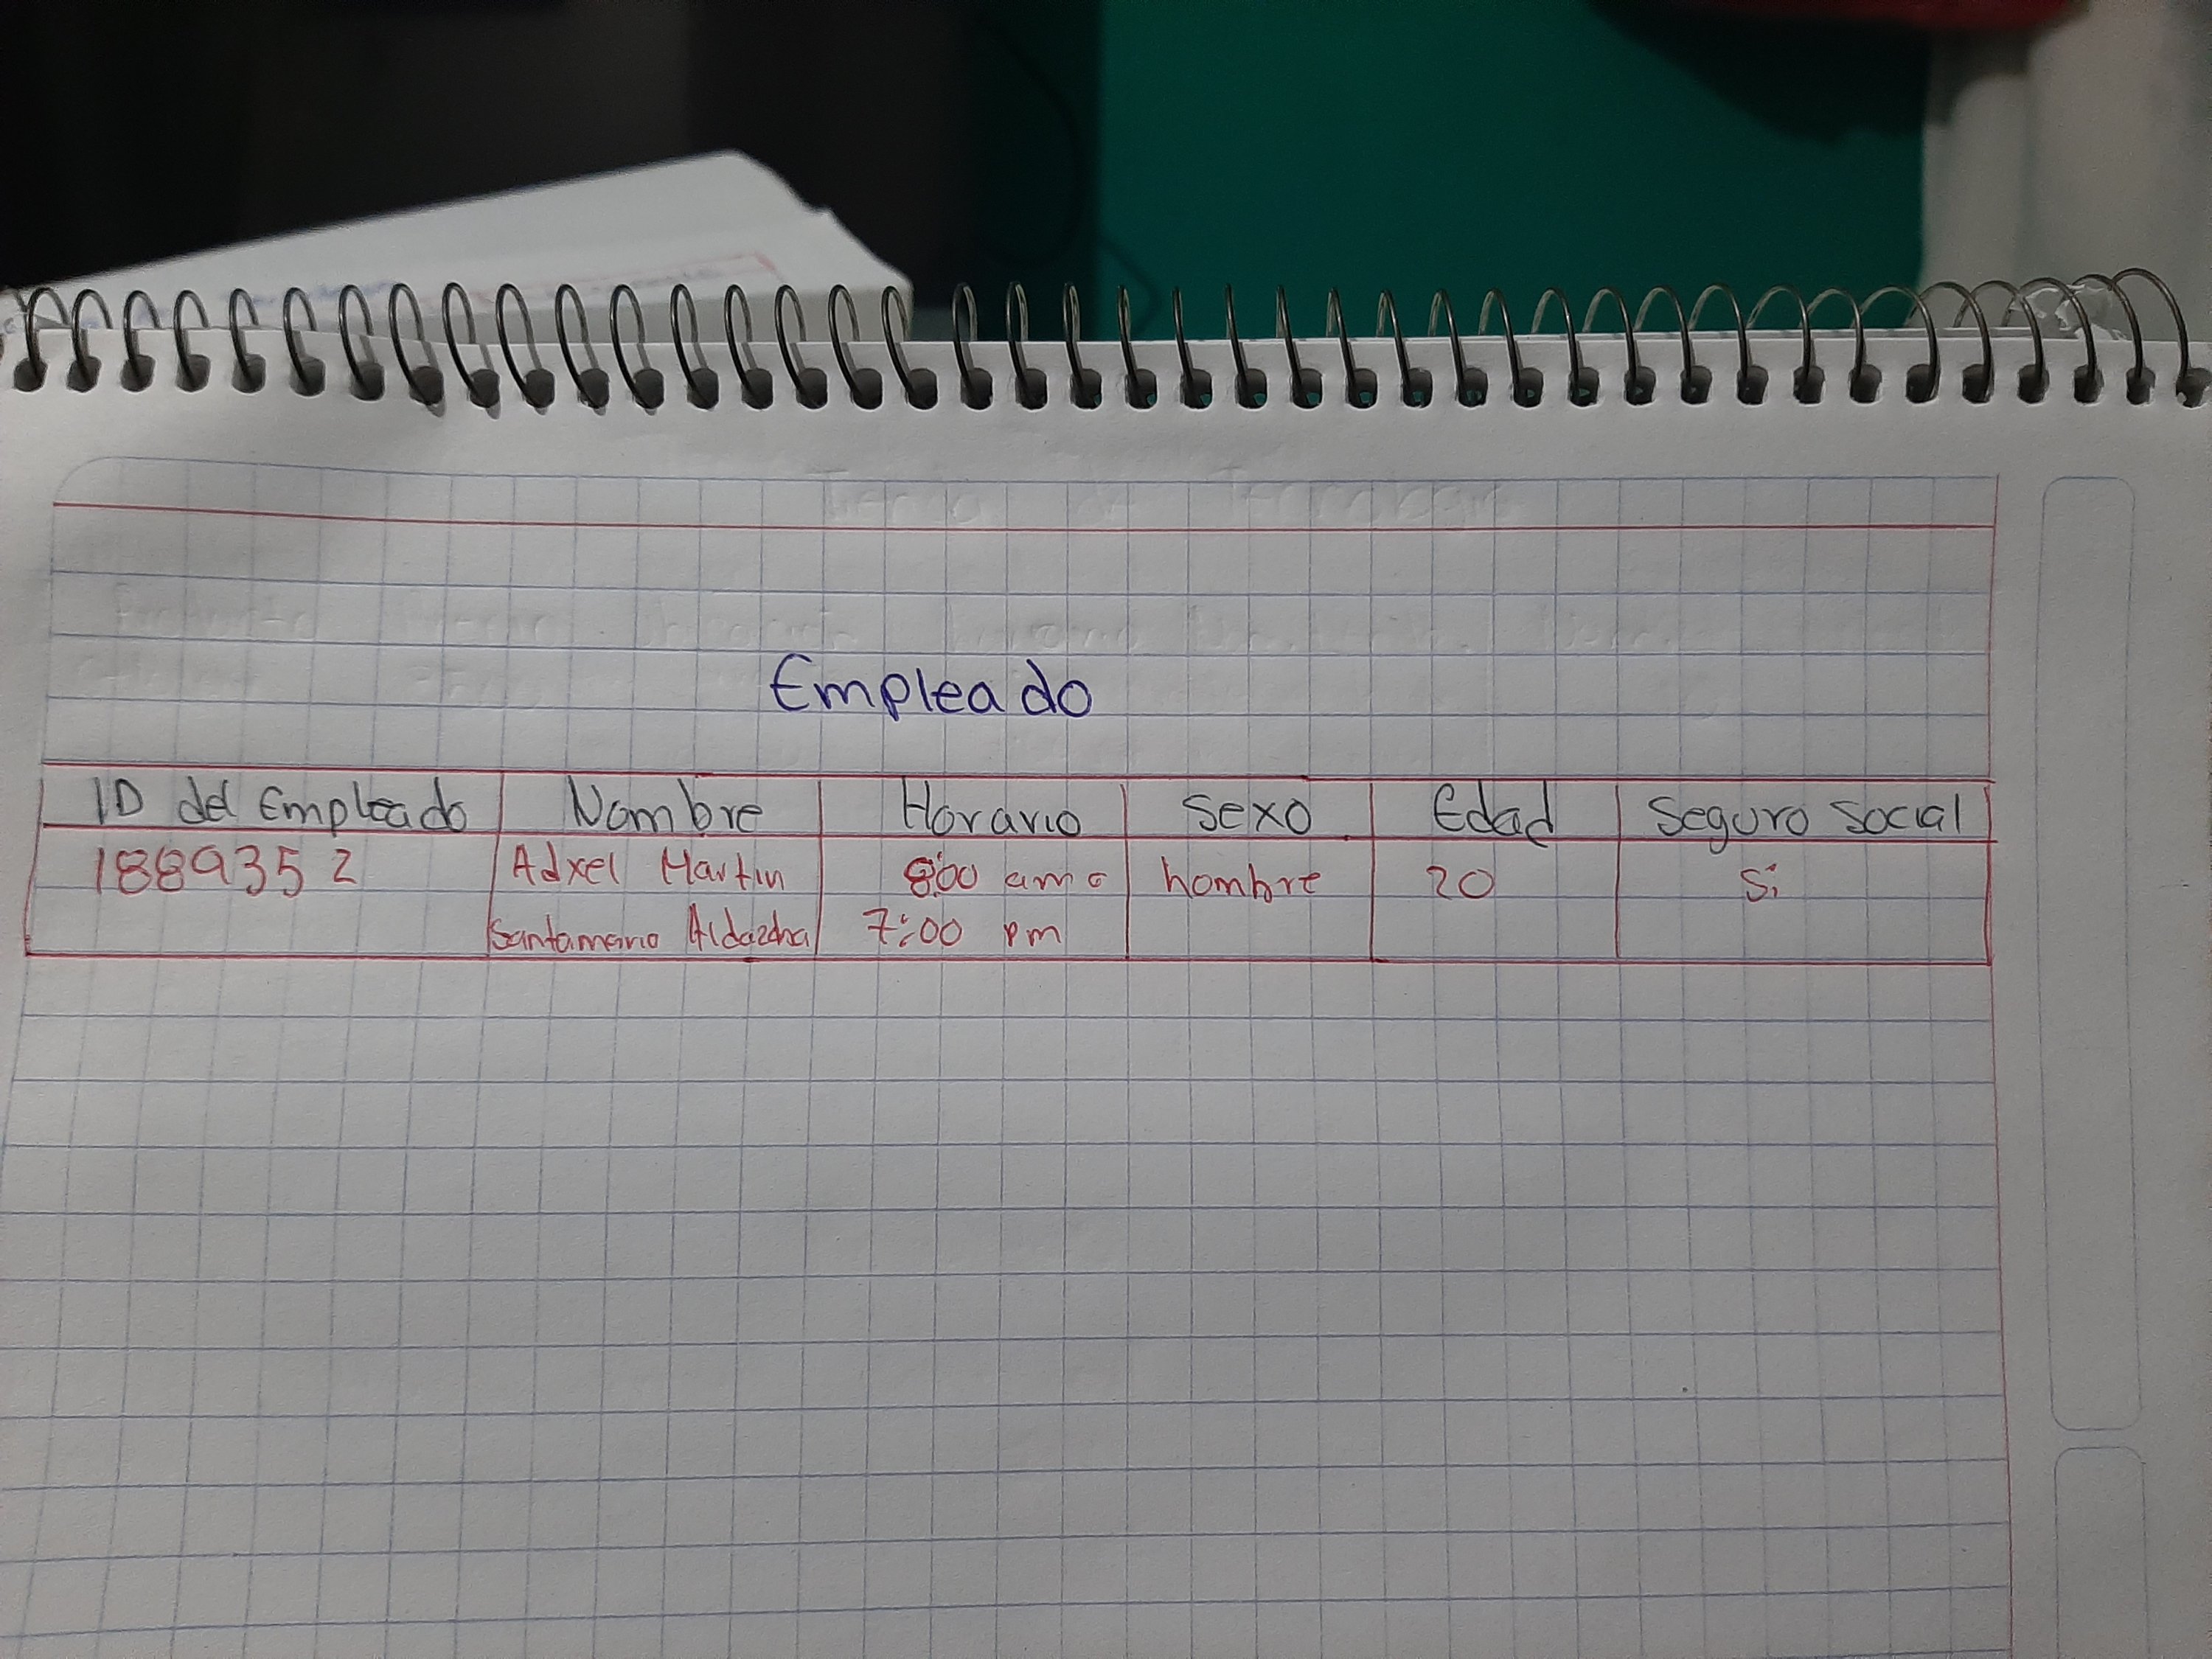 Empleado
ID del Empleado Nombre Horario Sexo Edad Seguro Social
1889352 Adxel Martin 8:00 am a hombre 20 Si
Santamaria 7:00 pm